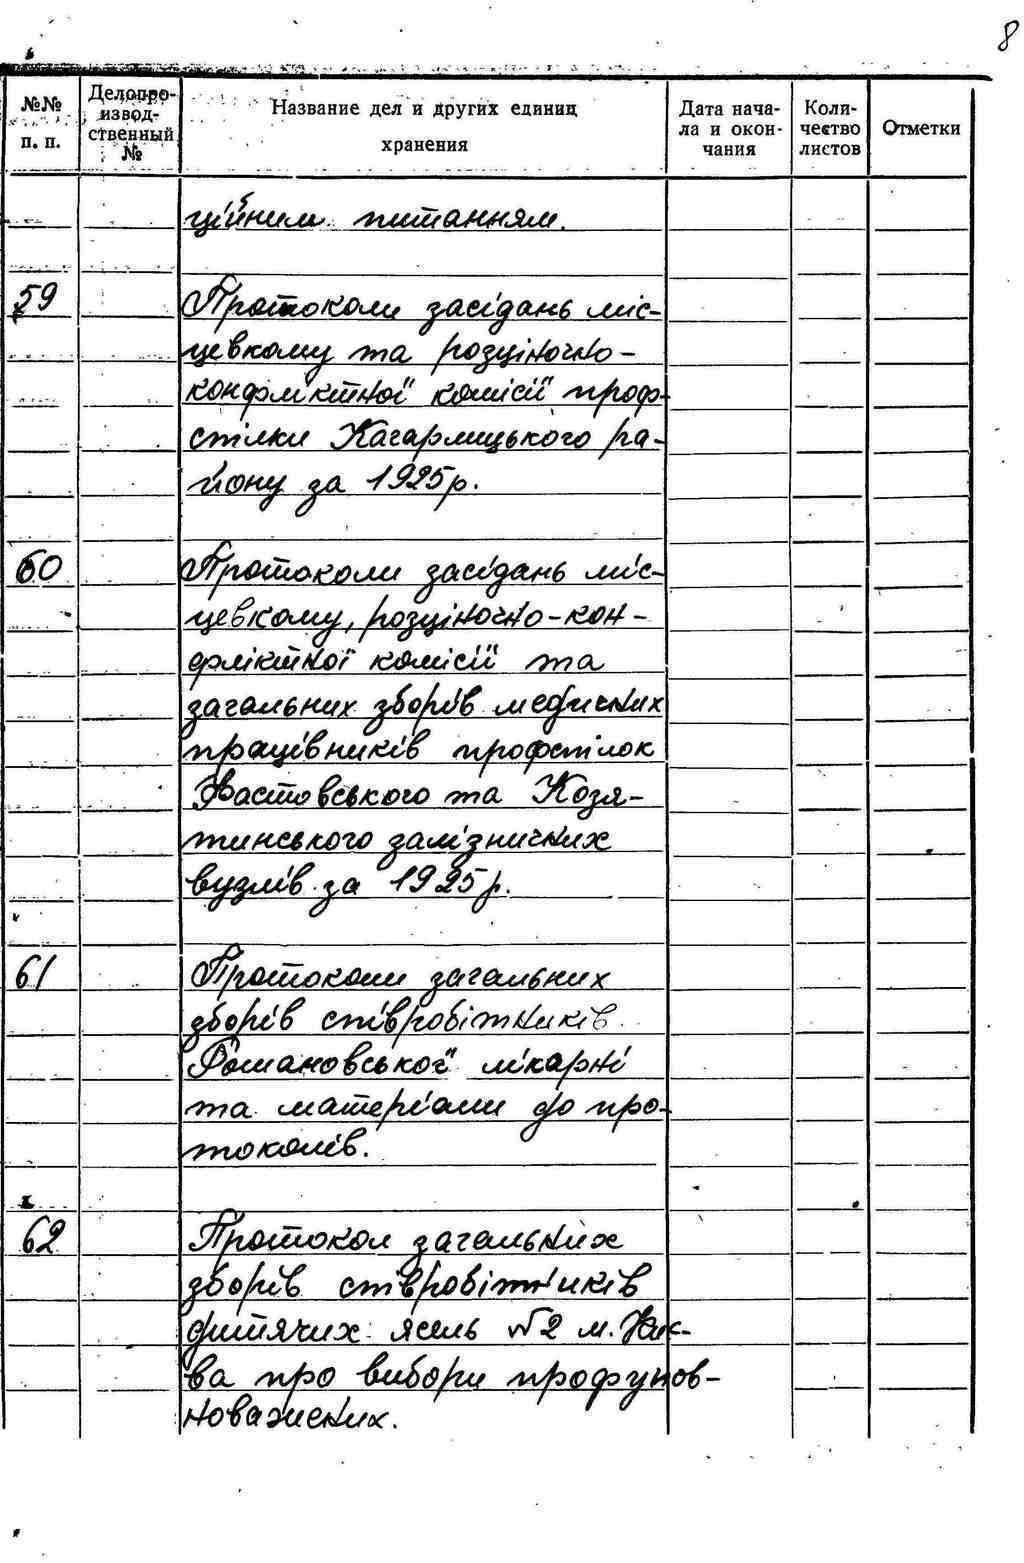 8
№№ п. п.
Делопроизвод-ственный №
Название дел и других единиц хранения
Дата нача-ла и окон-чания
Коли-чество листов
Отметки
ційним питанням.
59
Протоколи засідань міс-
цевкому та розціночно-
конфліктної комісії проф-
спілки Кагарлицького ра-
йону за 1925р.
60
Протоколи засідань міс-
цевкому, розціночно-кон-
фліктної комісії та
загальних зборів медичних
працівників профспілок
Фастовського та Козя-
тинського залізничних
вузлів за 1925р.
61
Протоколи загальних
зборів співробітників
Романовської лікарні
та матеріали до про-
токолів.
62
Протокол загальних
зборів співробітників
дитячих ясель №2 м. Киє-
ва про вибори профупов-
новажених.